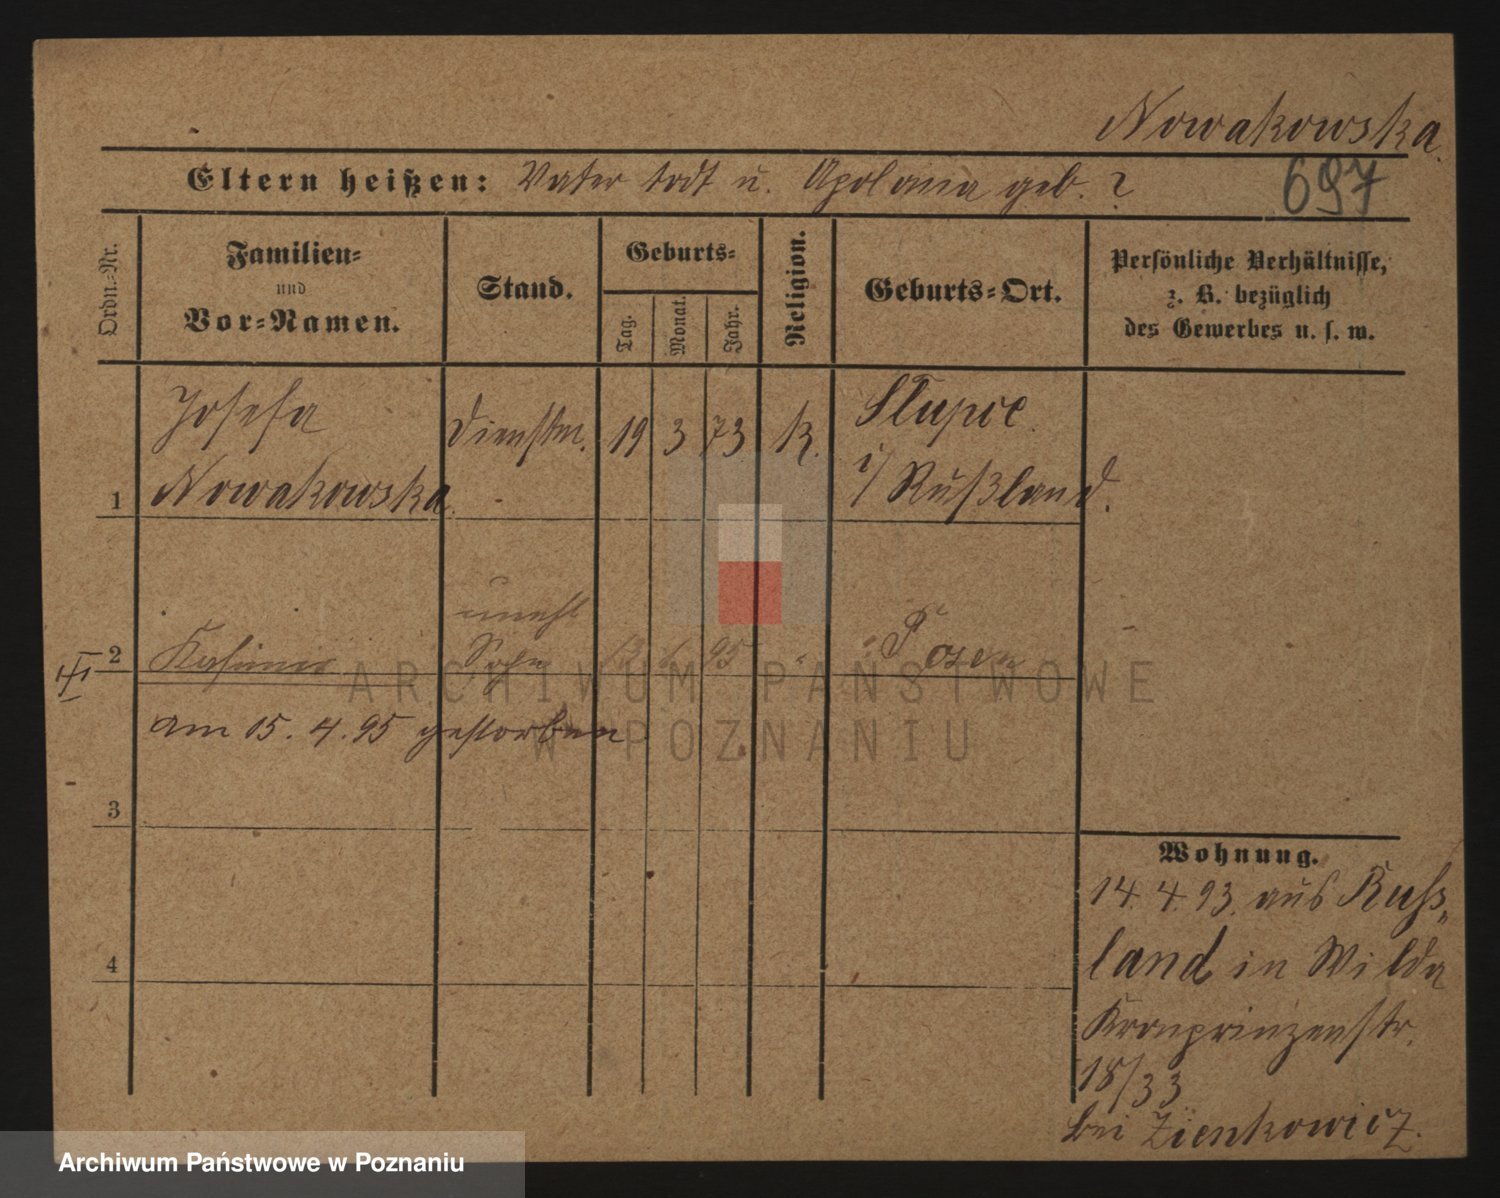 Nowakowska.
Eltern heißen: Vater todt u. Apolonia geb. ?
697
Ordn.-Nr.
Familien-
und
Vor-Namen.
Stand.
Geburts-
Tag.
Monat.
Jahr.
Religion.
Geburts-Ort.
Persönliche Verhältnisse,
z. B. bezüglich
des Gewerbes u. s. w.
Josefa
Nowakowska.
Dienstm.
19 3 73 K.
Slupce
i/ Rußland.
1
2
Kasimir
unehl
Sohn
95 "
Posen
am 15. 4. 95 gestorben
3
4
Wohnung.
14. 4. 93. aus Russ-
land in Wilda
Kronprinzenstr.
18/33
bei Zienkowicz.
ARCHIWUM PAŃSTWOWE
W POZNANIU
Archiwum Państwowe w Poznaniu